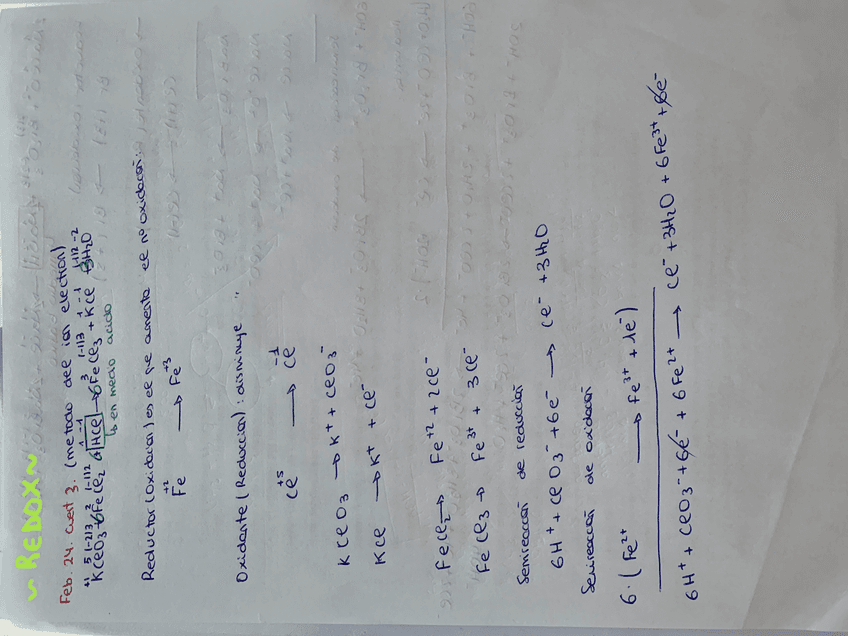 ~ REDOX ~
Feb. 24. Cuest 3. (metodo del ion electron)
+1 5 (-2)3 2 (-1)2 1 -1 3 (-1)3 1 -1 (+1)2 -2
KClO3 + 6FeCl2 + 6HCl → 6FeCl3 + KCl + 3H2O
↳ en medio acido
Reductor (Oxidacion) es el que aumenta el nº oxidacion:
Fe+2 → Fe+3
Oxidante (Reduccion): disminuye "
Cl+5 → Cl-1
KClO3 → K+ + ClO3-
KCl → K+ + Cl-
FeCl2 → Fe+2 + 2Cl-
FeCl3 → Fe3+ + 3Cl-
Semireacción de reducción
6H+ + ClO3- + 6e- → Cl- + 3H2O
Semireacción de oxidación
6·(Fe2+ → Fe3+ + 1e-)
6H+ + ClO3- + 6e- + 6Fe2+ → Cl- + 3H2O + 6Fe3+ + 6e-